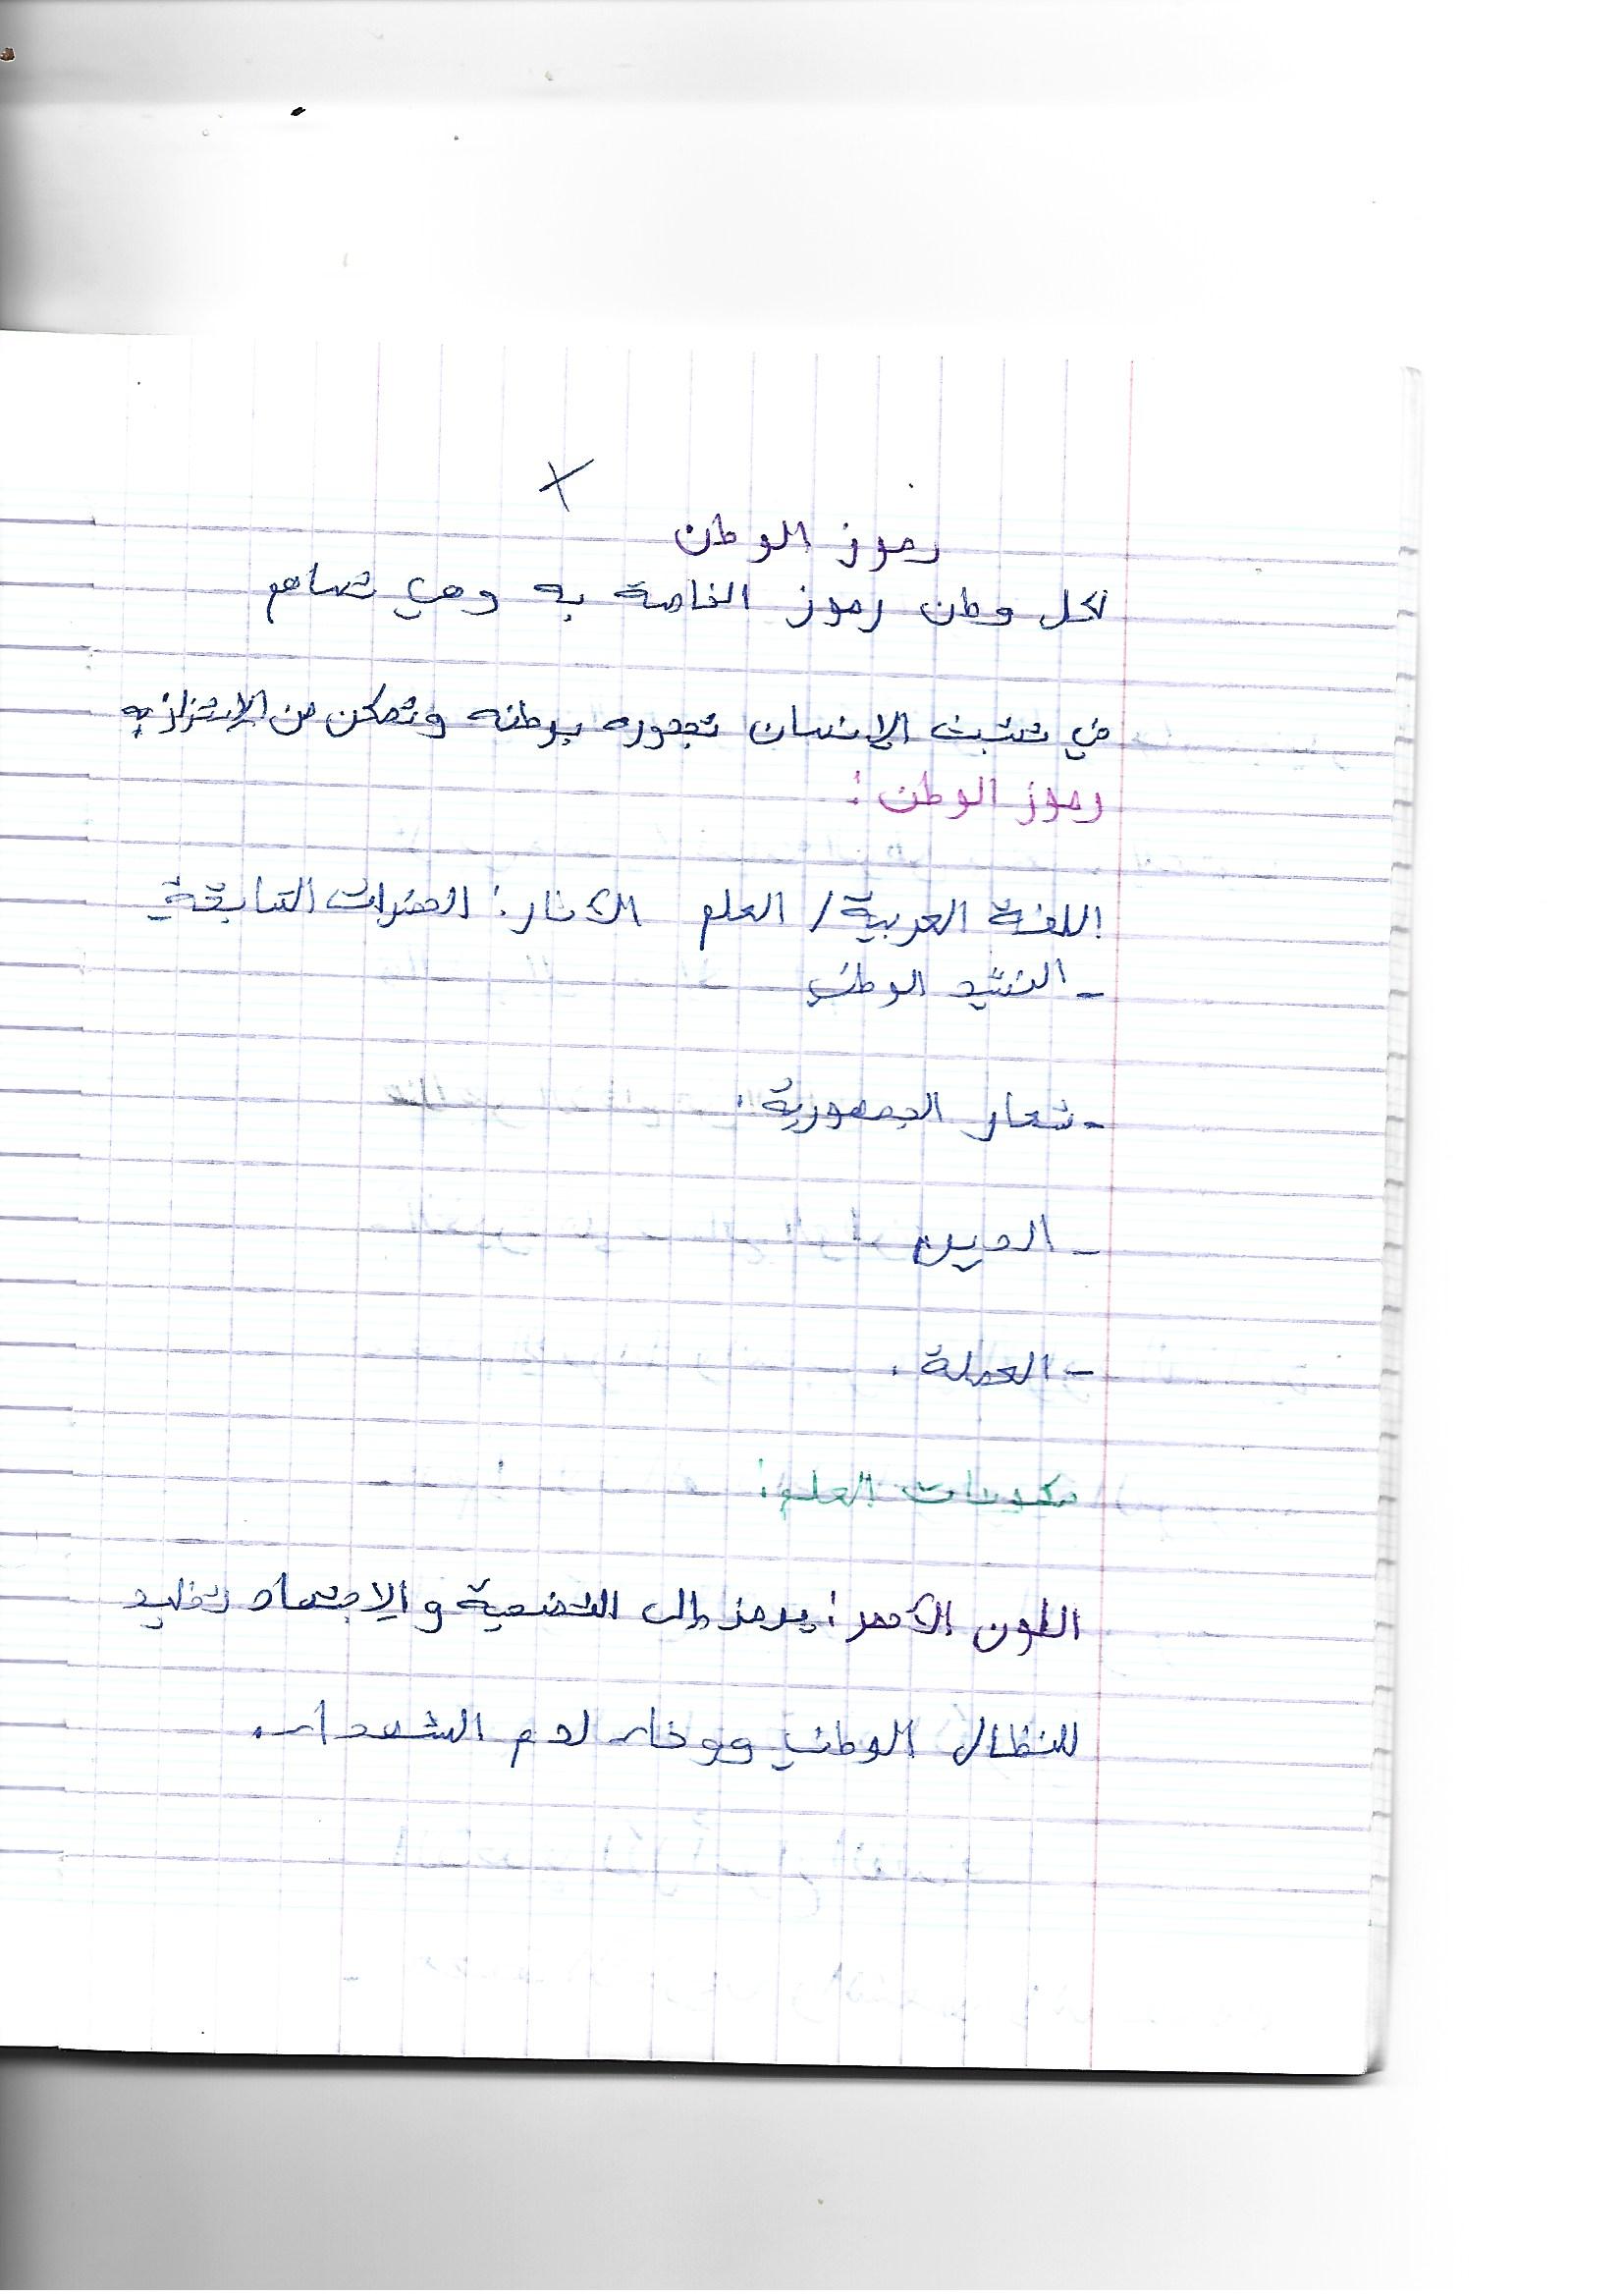 رموز الوطن
لكل وطن رموز الخاصة به وهي تساهم
في تثبت الإنسان تجدوره بوطنه وتمكن من الإعتزاز به
رموز الوطن :
اللغة العربية / العلم الآثار : الحضرات السابقة
- النشيد الوطني
- شعار الجمهورية .
- الدين
- العملة .
مكونات العلم :
اللون الأحمر : يرمز إلى التضحية و الإجتهاد تخليد
للنظال الوطني ووفاء لدم الشهداء .